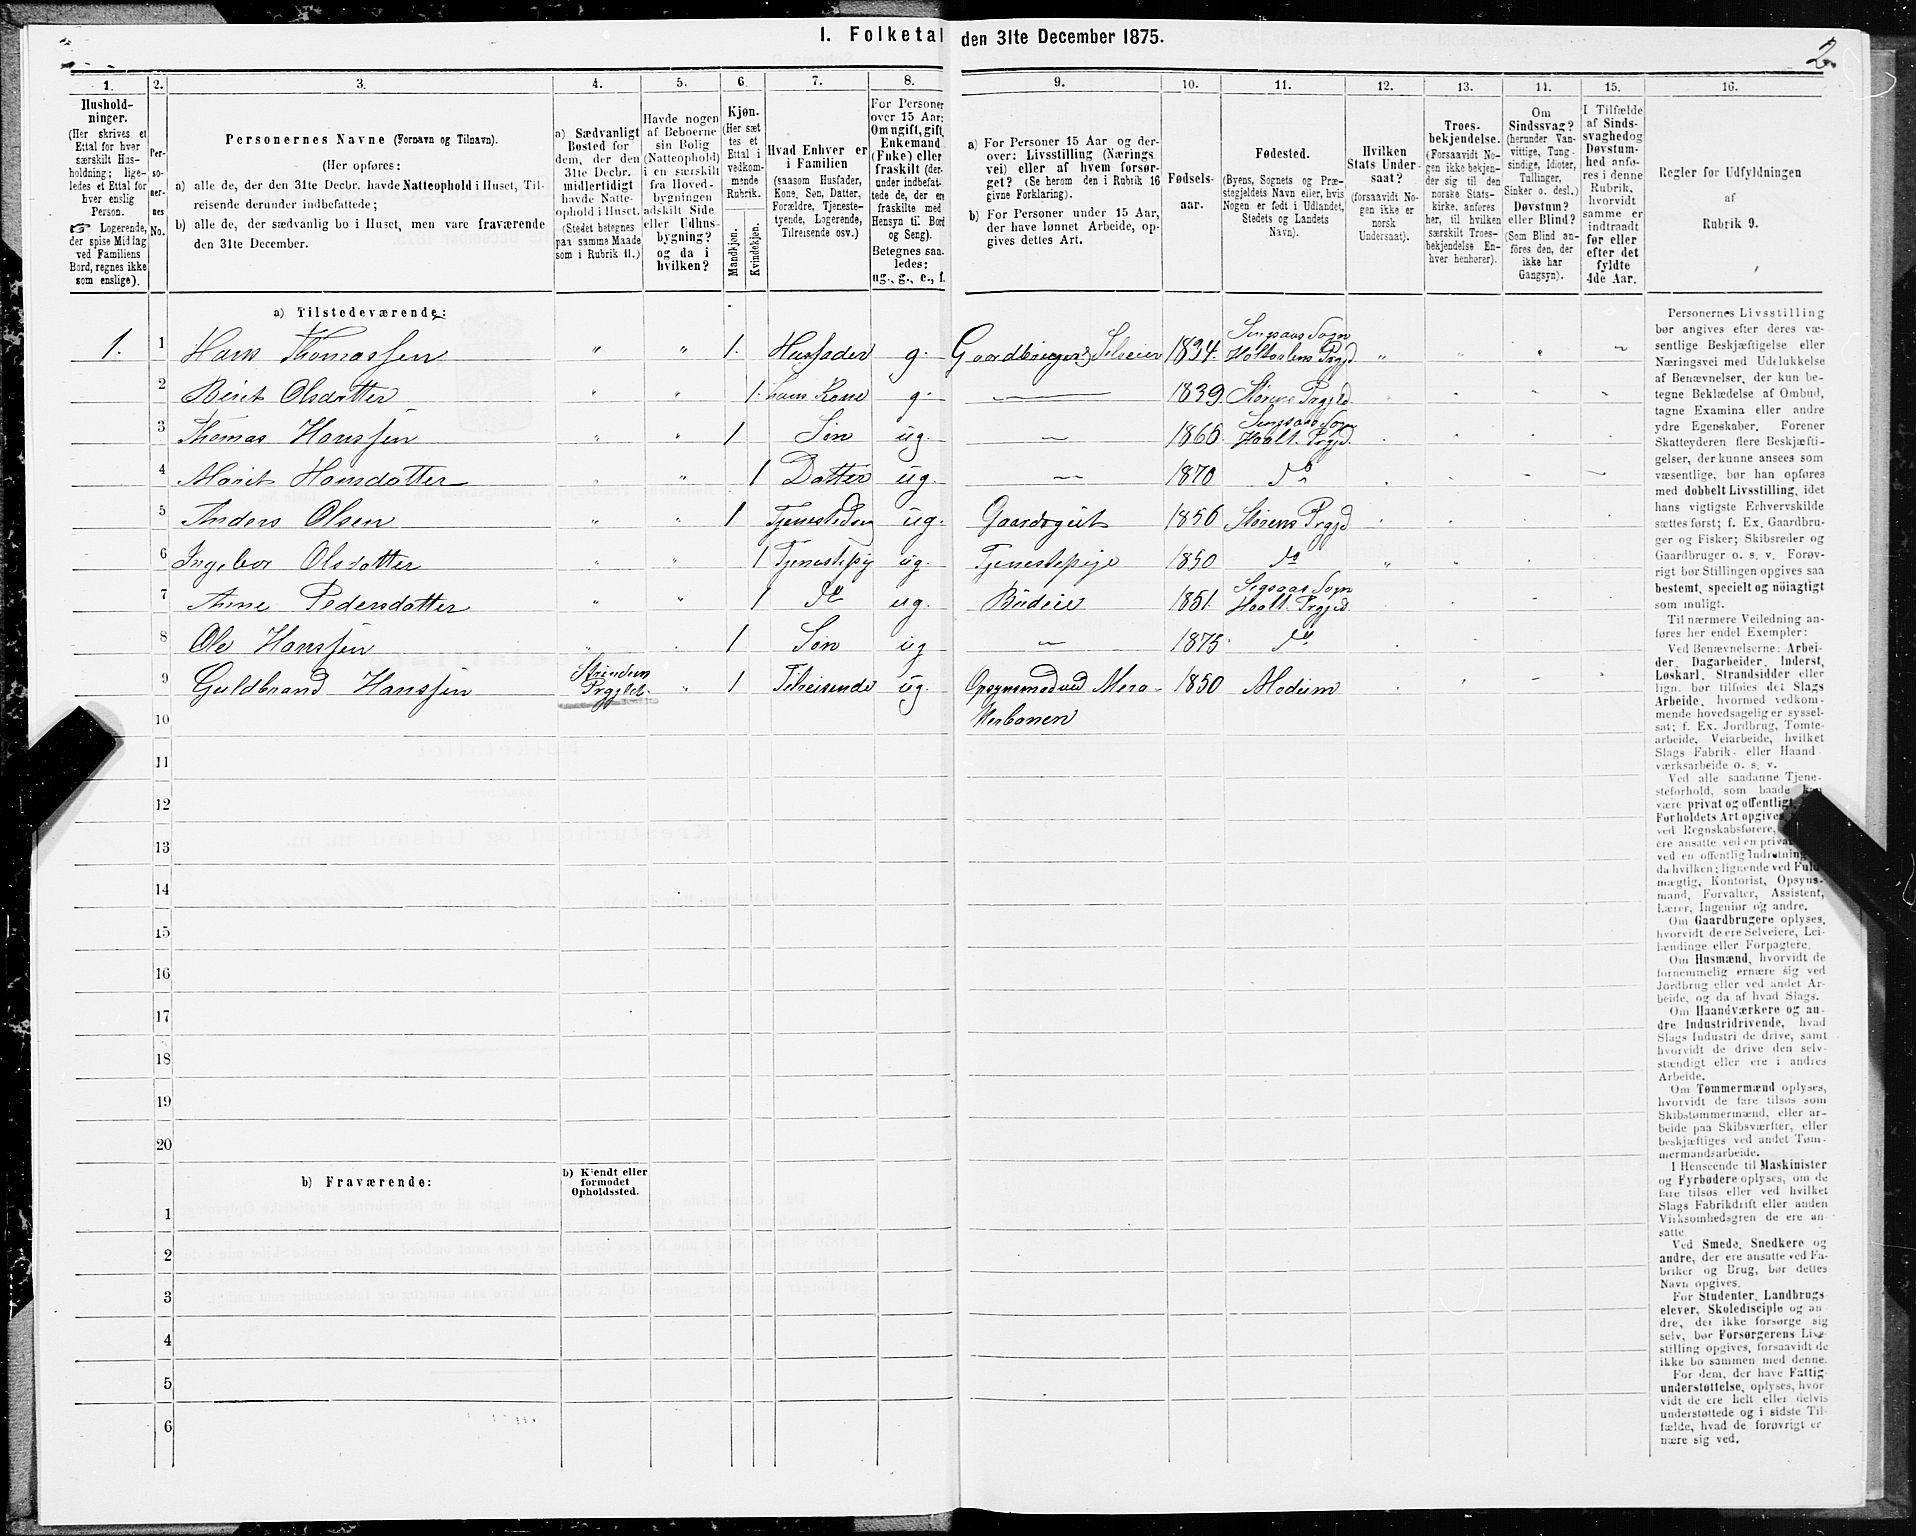 I. Folketal den 31te December 1875.
2.
1. 2. 3. 4. 5. 6. 7. 8. 9. 10. 11. 12. 13. 14. 15. 16.
Hushold-
ninger.
(Her skrives et
Ettal for hver
særskilt Hus-
holdning; lige-
ledes et Ettal for
hver enslig
Person.
☞ Logerende,
der spise Middag
ved Familiens
Bord, regnes ikke
som enslige).
Per-
so-
ner-
nes
No.
Personernes Navne (Fornavn og Tilnavn).
(Her opføres:
a) alle de, der den 31te Decbr. havde Natteophold i Huset, Til-
reisende derunder indbefattede;
b) alle de, der sædvanlig bo i Huset, men vare fraværende
den 31te December.
a) Sædvanligt
Bosted for
dem, der den
31te Decbr.
midlertidigt
havde Natte-
ophold i Huset.
(Stedet betegnes
paa samme Maade
som i Rubrik 11.)
Havde nogen
af Beboerne
sin Bolig
(Natteophold)
i en særskilt
fra Hoved-
bygningen
adskilt Side
eller Udhus-
bygning?
og da i
hvilken?
Kjøn.
(Her sæt
tes et
Ettal i
vedkom-
mende
Rubrik.
Mandkjøn.
Kvindekjøn.
Hvad Enhver er
i Familien
(saasom Husfader,
Kone, Søn, Datter,
Forældre, Tjeneste-
tyende, Logerende,
Tilreisende osv.)
For Personer
over 15 Aar:
Om ugift, gift,
Enkemand
(Enke) eller
fraskilt (der-
under indbefat-
tede de, der er
fraskilte med
Hensyn til Bord
og Seng).
Betegnes saa-
ledes:
ug., g., e., f.
a) For Personer 15 Aar og der-
over: Livsstilling (Nærings
vei) eller af hvem forsør-
get? (Se herom den i Rubrik 16
givne Forklaring).
b) For Personer under 15 Aar,
der have lønnet Arbeide, op-
gives dettes Art.
Fødsels-
aar.
Fødested.
(Byens, Sognets og Præ-
stegjeldets Navn eller, hvis
Nogen er født i Udlandet,
Stedets og Landets
Navn).
Hvilken
Stats Under-
saat?
(forsaavidt No-
gen ikke er
norsk
Undersaat).
Troes-
bekjendelse.
(Forsaavidt No-
gen ikke bekjen-
der sig til den
norske Stats-
kirke, anføres
her, til hvilken
særskilt Troes-
bekjendelse En-
hver henhører).
Om
Sindssvag?
(herunder Van-
vittige, Tung-
sindige, Idioter,
Tullinger,
Sinker o. desl.)
Døvstum?
eller Blind?
(Som Blind an-
føres den, der
ikke har
Gangsyn).
I Tilfælde
af Sinds-
svaghed og
Døvstum-
hed anfø-
res i denne
Rubrik,
hvorvidt
samme er
indtraadt
før eller
efter det
fyldte
4de Aar.
Regler for Udfyldningen
af
Rubrik 9.
a) Tilstedeværende:
1. 1 Hans Thomassen " " 1. Husfader g. Gaardbruger, Selveier 1834. Singsaas Sogn Holtaalens Prgjd " " " "
2 Berit Olsdatter " " 1. hans Kone g. — 1839 Størens Prgjld.
3 Thomas Hanssen " " 1 Søn ug. — 1865. Singsaas Sogn Haalt. Prgjd.
4 Marit Hansdatter " " 1 Datter ug. — 1870 do
5 Anders Olsen " " 1 Tjenestedreng ug. Gaardsgut 1856 Størens Prgjd
6 Ingebor Olsdatter " " 1 Tjenestepig ug. Tjenestepige 1850 do
7 Anne Pedersdatter " " 1 do ug. Budeie 1851. Sigsaas Sogn Haalt. Prgjld
8 Ole Hanssen " 1 Søn ug — 1875. do
9 Guldbrand Hanssen Strinden Prgjeld. " 1 Tilreisende ug. Opsynsmand ved Mera- 1850 Modum
10 kerbanen
11
12
13
14
15
16
17
18
19
20
b) Fraværende:
b) Kjendt eller
formodet
Opholdssted.
1
2
3
4
5
6
Personernes Livsstilling
bør angives efter deres væ-
sentlige Beskjæftigelse eller
Næringsvei med Udelukkelse
af Benævnelser, der kun be-
tegne Beklædelse af Ombud,
tagne Examina eller andre
ydre Egenskaber. Forener
Skatteyderen flere Beskjæfti-
gelser, der kunne ansees som
væsentlige, bør han opføres
med dobbelt Livsstilling, idet
hans vigtigste Erhvervskilde
sættes først; f. Ex. Gaardbru-
ger og Fisker; Skibsreder og
Gaardbruger o. s. v. Forøv-
rigt bør Stillingen opgives saa
bestemt, specielt og nöiagtigt
som muligt.
Til nærmere Veiledning an-
føres her endel Exempler:
Ved Benævnelserne: Arbei-
der, Dagarbeider, Inderst,
Løskarl, Strandsidder eller
lign. bør tilføies det Slags
Arbeide, hvormed vedkom-
mende hovedsagelig er syssel-
sat; f. Ex. Jordbrug, Tomte-
arbeide, Veiarbeide, hvilket
Slags Fabrik- eller Haand-
værksarbeide o. s. v.
Ved alle saadanne Tjene-
steforhold, som baade kan
være privat og offentligt,
Forholdets Art opgives,
ved Regnskabsførere,
ere ansatte ved en privat
ved en offentlig Indretning
da hvilken; lignende ved Fuld-
mægtig, Kontorist, Opsyns-
mand, Forvalter, Assistent,
Lærer, Ingeniør og andre.
Om Gaardbrugere oplyses,
hvorvidt de ere Selveiere, Lei-
lændinge eller Forpagtere.
Om Husmænd, hvorvidt de
fornemmelig ernære sig ved
Jordbrug eller ved andet Ar-
beide, og da af hvad Slags.
Om Haandværkere og an-
dre Industridrivende, hvad
Slags Industri de drive, samt
hvorvidt de drive den selv-
stændigt eller ere i andres
Arbeide.
Om Tømmermænd oplyses,
hvorvidt de fare tilsøs som
Skibstømmermænd, eller ar-
beide paa Skibsværfter, eller
beskjæftiges ved andet Tøm-
mermandsarbeide.
I Henseende til Maskinister
og Fyrbødere oplyses, om de
fare tilsøs eller ved hvilket
Slags Fabrikdrift eller anden
Virksomhedsgren de ere an-
satte.
Ved Smede, Snedkere og
andre, der ere ansatte ved Fa-
briker og Brug, bør dettes
Navn opgives.
For Studenter, Landbrugs-
elever, Skoledisciple og an-
dre, der ikke forsørge sig
selv, bør Forsørgerens Livs-
stilling opgives, forsaavidt de
ikke bo sammen med denne.
For dem, der have Fattig-
understøttelse, oplyses, hvor-
vidt de ere helt eller delvis
understøttede og i sidste Til-
fælde, hvad de forøvrigt er-
nære sig ved.